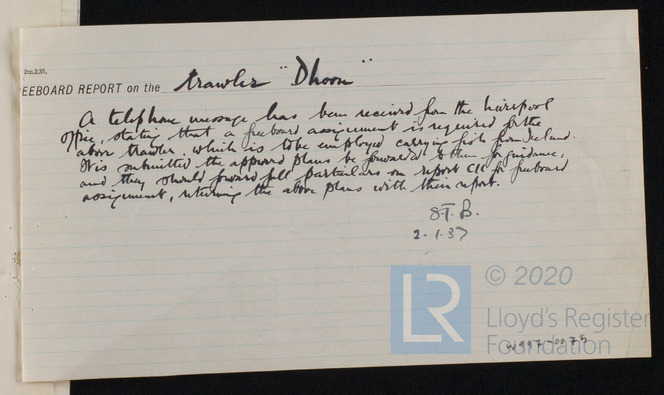 2m.2.35.
EEBOARD REPORT on the trawler "Dhoon"
A telephone message has been received from the Liverpool
office, stating that a freeboard assignment is required for the
above trawler, which is to be employed carrying fish from Iceland.
It is submitted the approved plans be forwarded to them for guidance,
and they should forward full particulars on report C11 for freeboard
assignment, returning the above plans with their report.
S.T.B.
2.1.37
LR © 2020
Lloyd's Register
Foundation
W992-0075